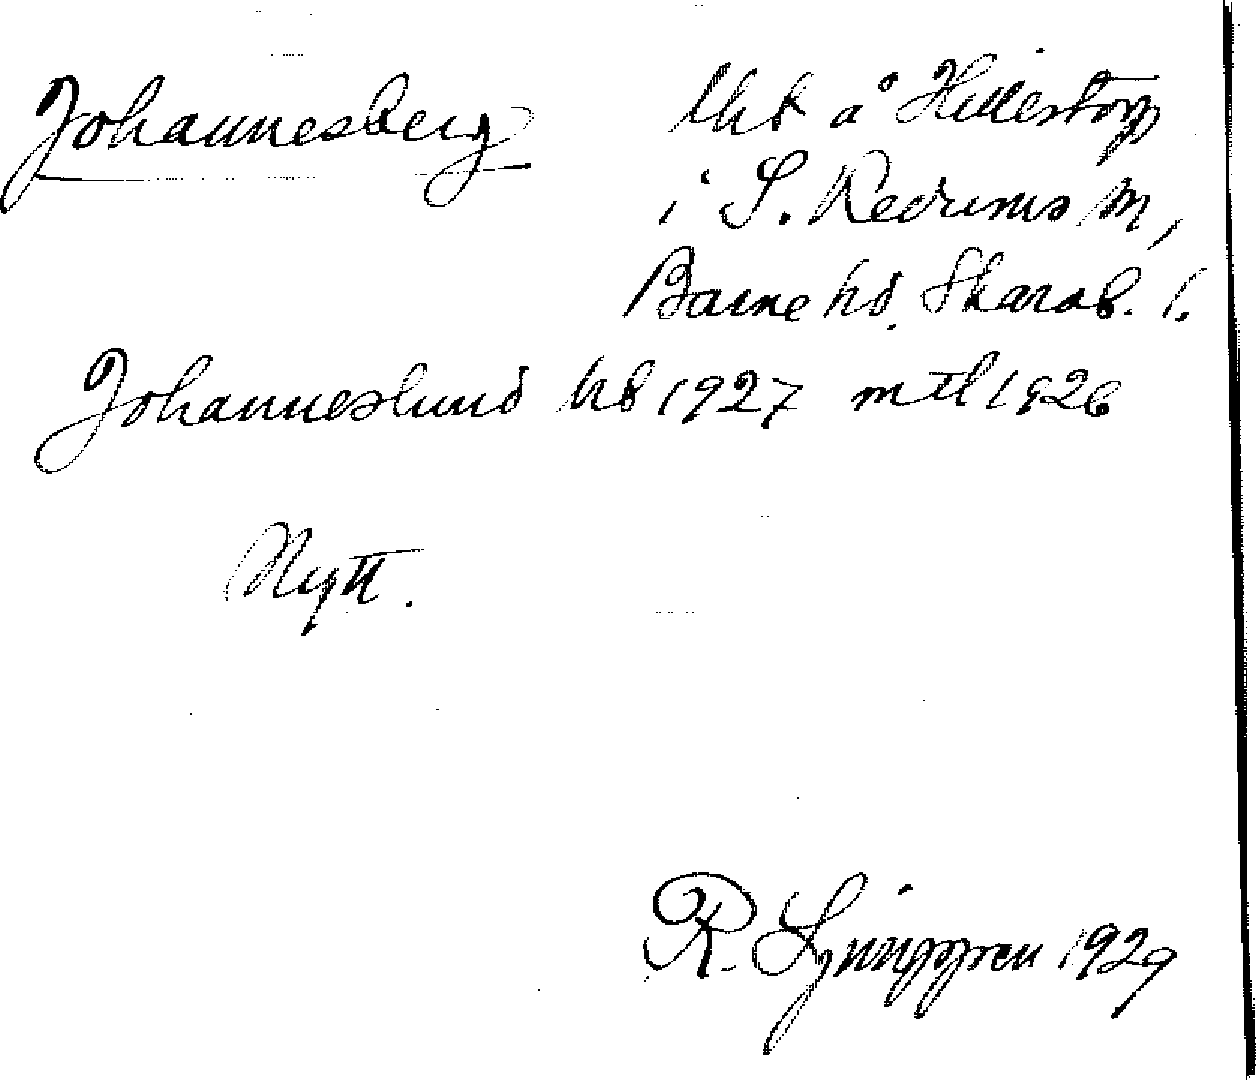 Johannesberg
Uts å Hillestorp
i S. Kedums sn,
Barne hd. Skarab. l.
Johanneslund hb 1927 mtl 1926
Nytt.
R. Ljunggren 1929